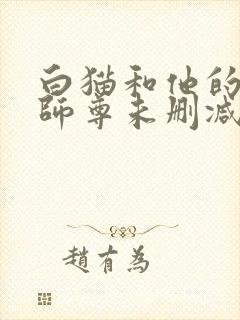 白猫和他的
師尊未删减
趙有為